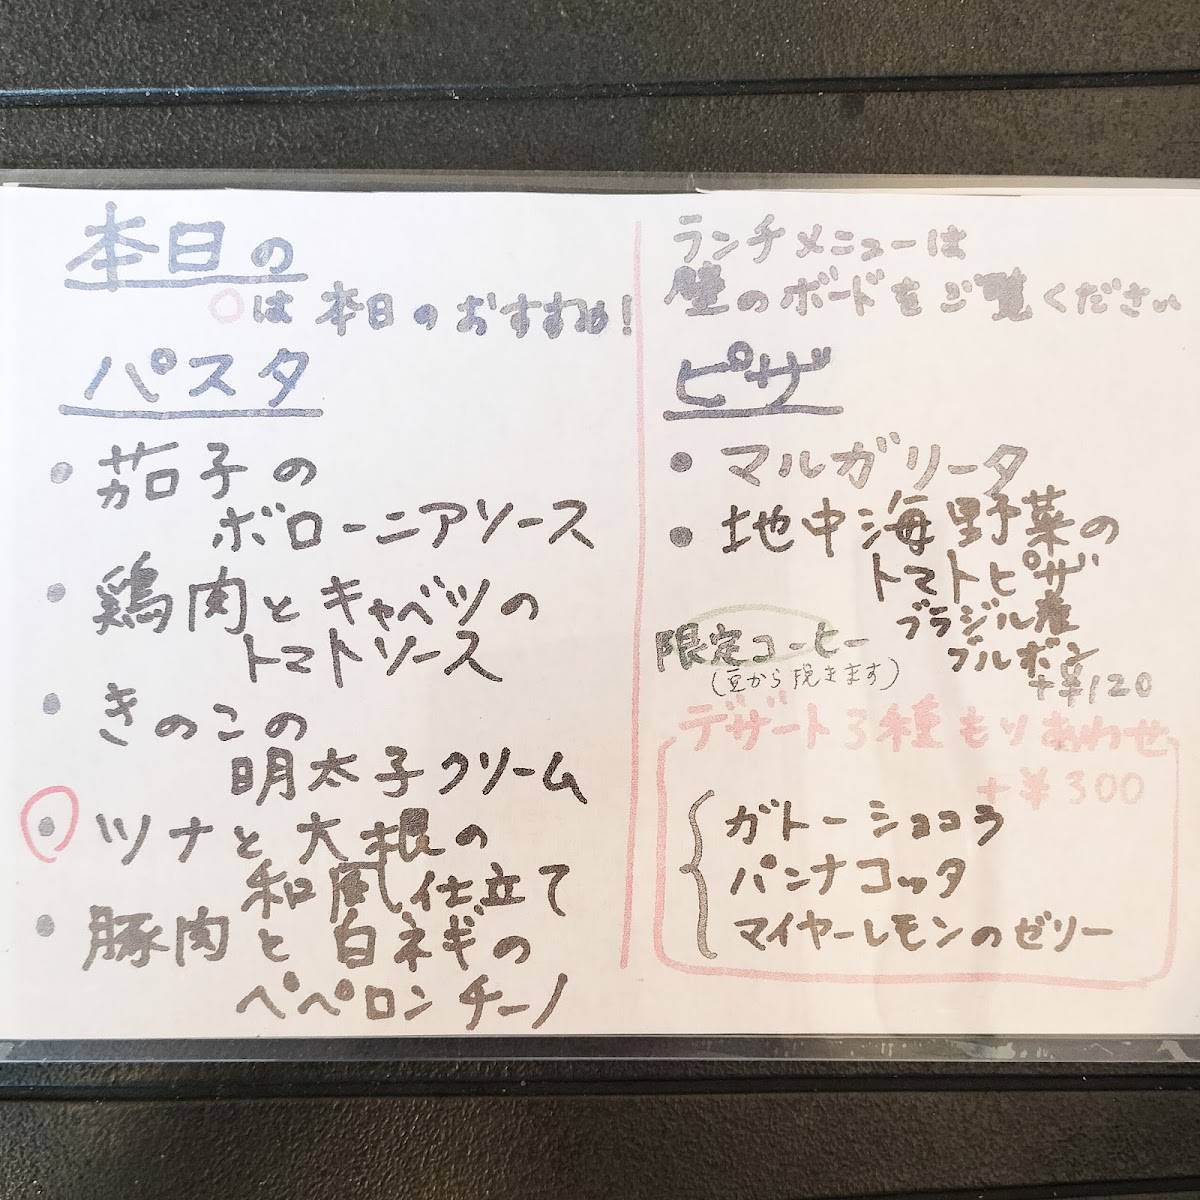 本日の
○は本日のおすすめ!
パスタ
・茄子の
ボローニアソース
・鶏肉とキャベツの
トマトソース
・きのこの
明太子クリーム
・ツナと大根の
和風仕立て
・豚肉と白ネギの
ペペロンチーノ
ランチメニューは
壁のボードをご覧ください
ピザ
・マルガリータ
・地中海野菜の
トマトピザ
限定コーヒー
(豆から挽きます)
ブラジル産
ブルボン
+¥120
デザート3種もりあわせ
+¥300
ガトーショコラ
パンナコッタ
マイヤーレモンのゼリー